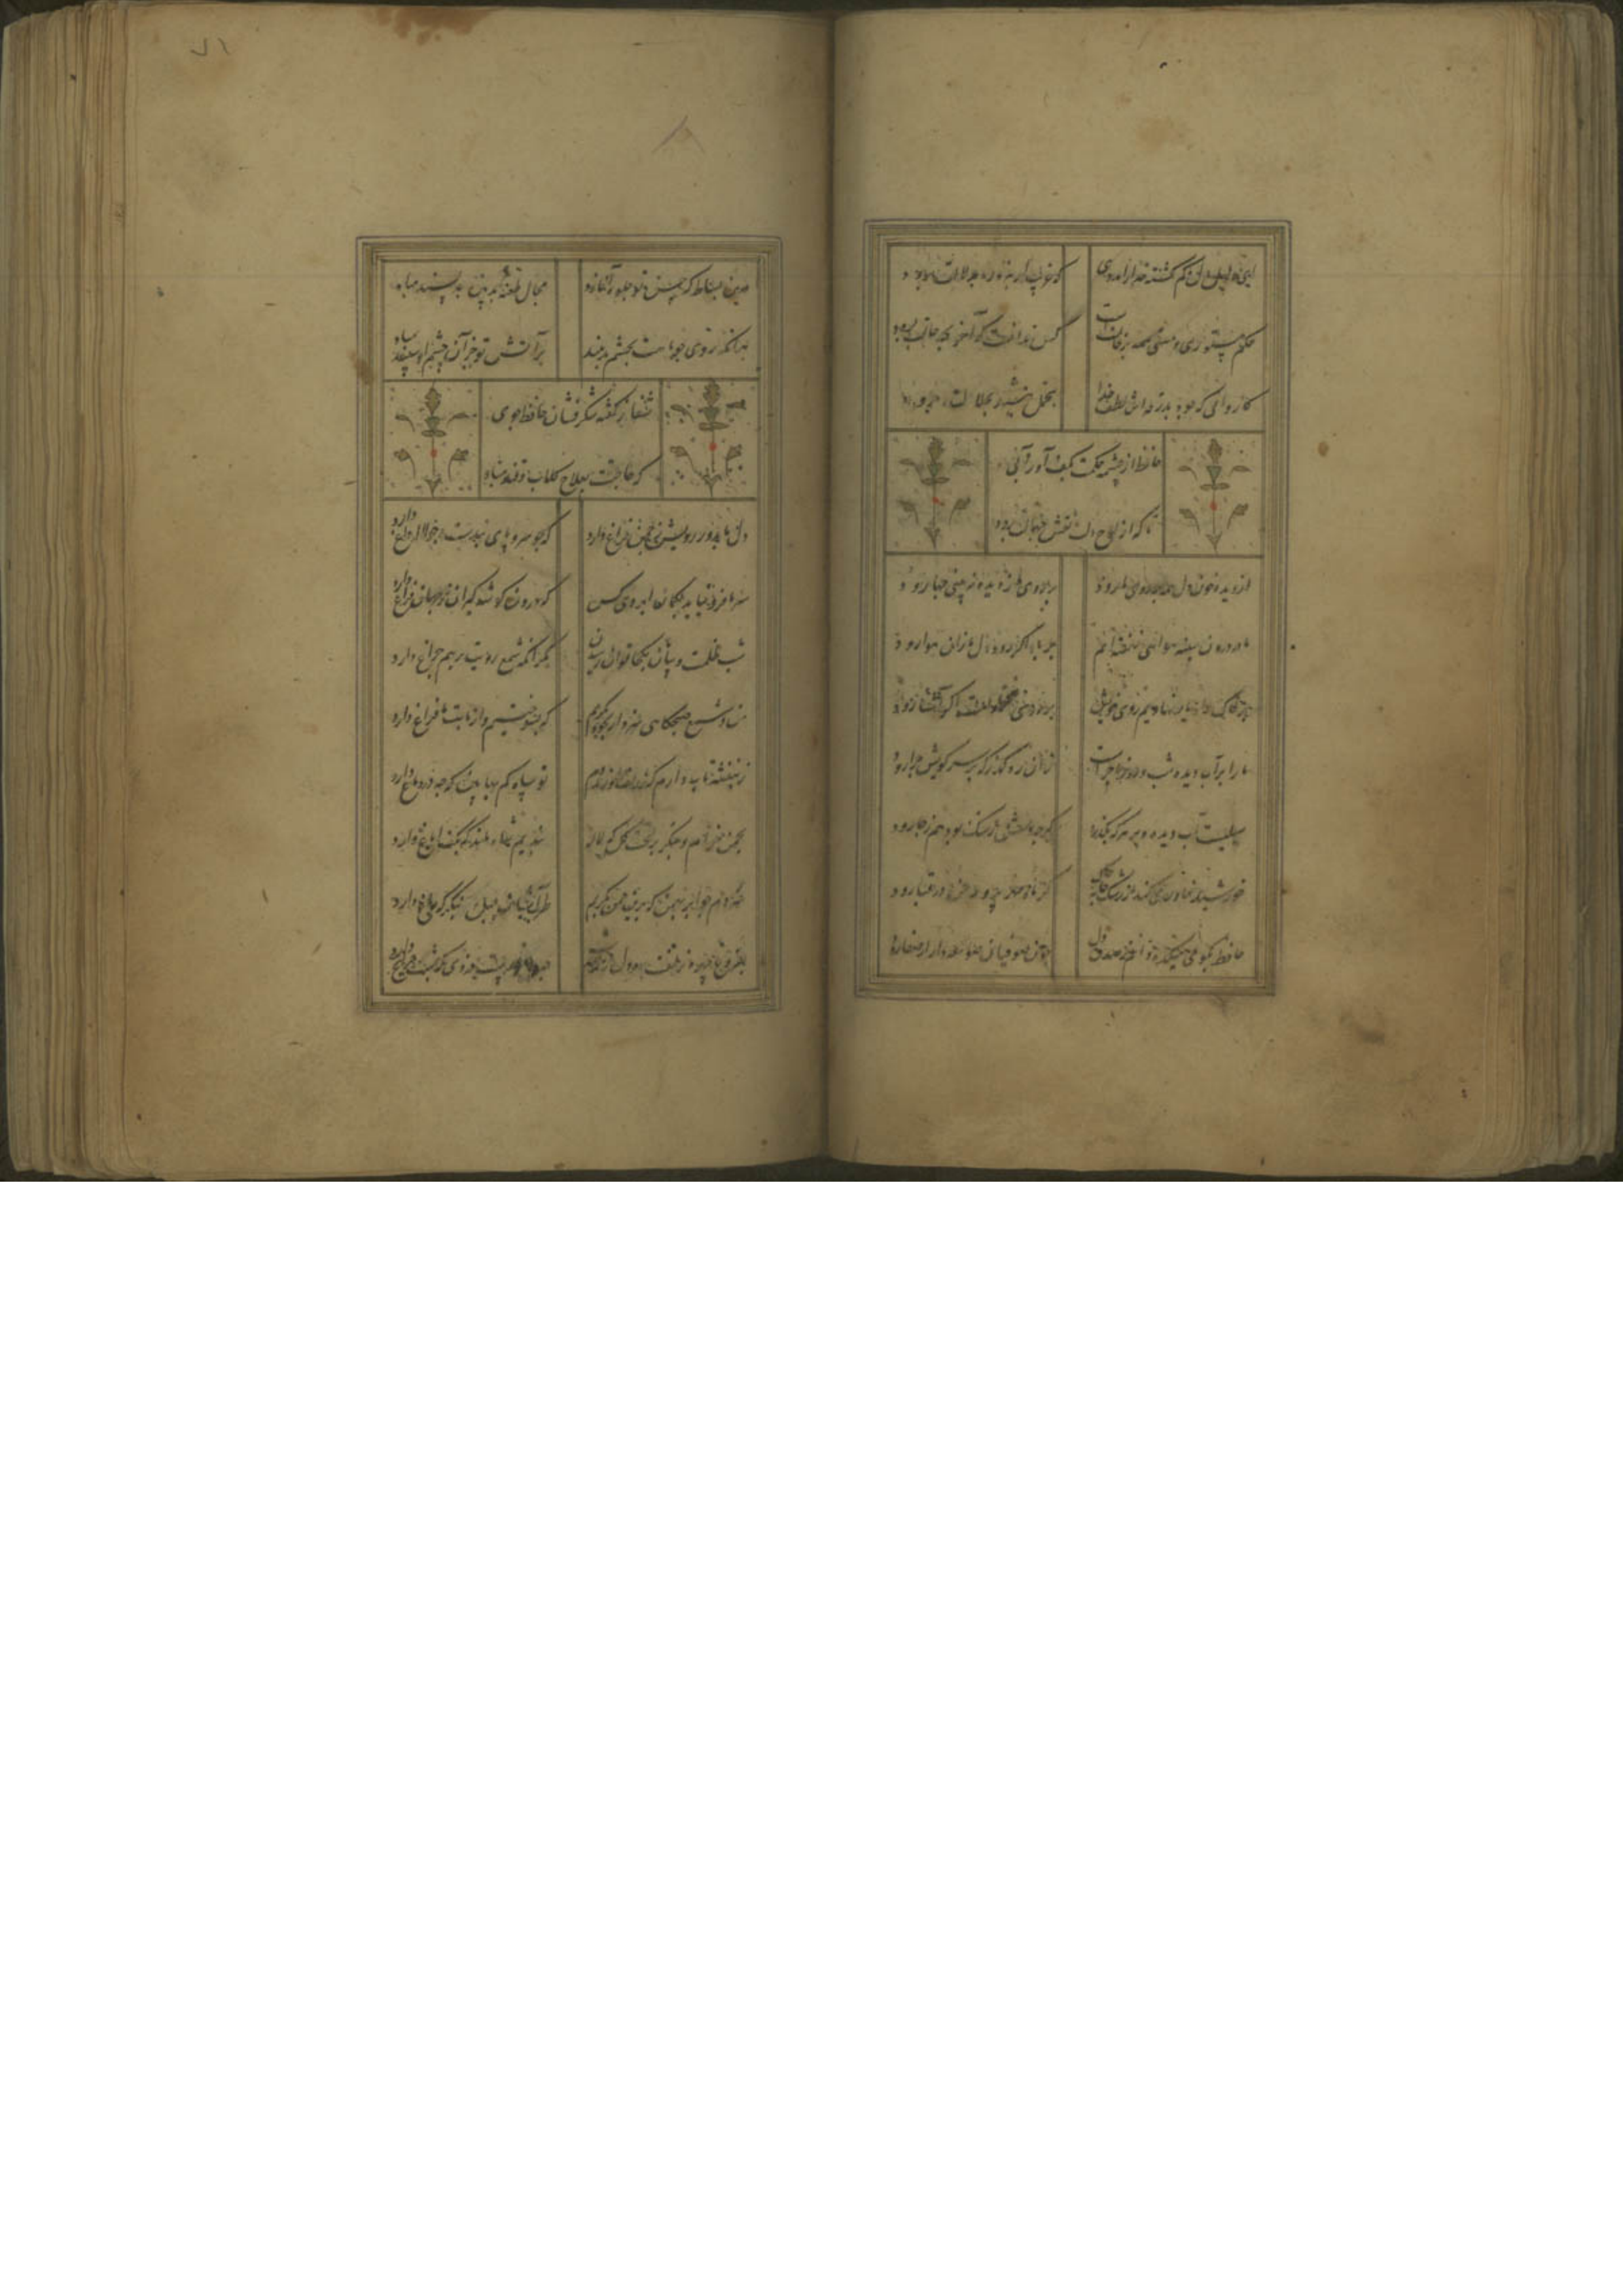 ای دلیل دل گم گشته خدا را مددی
که غریب ار نبرد ره به دلالت برود
حکم مستوری و مستی همه بر خاتمتست
کس ندانست که آخر بچه حالت برود
کاروانی که بود بدرقه اش لطف خدا
بتجمل بنشیند بجلالت برود
حافظ از چشمه حکمت بکف آور آبی
که از لوح دلت نقش جهالت برود
از دیده خون دل همه بر روی ما رود
بر روی ما ز دیده نه بینی چها رود
ما در درون سینه هوائی نهفته ایم
بر باد اگر رود دل ما زان هوا رود
بر خاک راه یار نهادیم روی خویش
بر روی ما رواست اگر آشنا رود
ما را بر آب دیده شب و روز ماجراست
زان ره گذر که بر سر کویش چرا رود
سیلیست آب دیده و بر هر که بگذرد
گرچه دلش ز سنگ بود هم ز جا رود
خورشید خاوری کند از رشک جامه چاک
گر ماه مهر پرور من در قبا رود
حافظ بکوی میکده دائم بصدق دل
چون صوفیان صومعه دار از صفا رود
بدین بساط که حسن تو جلوه آغازد
مجال طعنه بدبین و بدپسند مباد
هر آنکه روی چو ماهت بچشم بد بیند
بر آتش تو جز آن چشم او سپند مباد
شفا ز گفته شکرفشان حافظ جوی
که حاجتت بعلاج گلاب و قند مباد
دل ما بدور رویت ز چمن فراغ دارد
که چو سرو پای بندست و چو لاله داغ دارد
سر ما فرو نیاید بکمان ابروی کس
که درون گوشه گیران ز جهان فراغ دارد
شب ظلمت و بیابان بکجا توان رسیدن
مگر آنکه شمع رویت برهم چراغ دارد
من و شمع صبحگاهی سزد ار بهم بگرییم
که بسوختیم و از ما بت ما فراغ دارد
ز بنفشه تاب دارم که ز زلف او زند دم
تو سیاه کم بها بین که چه در دماغ دارد
بچمن خرام و بنگر بر تخت گل که لاله
بندیم شاه ماند که بکف ایاغ دارد
سزدم چو ابر بهمن که برین چمن بگریم
طرب آشیان بلبل بنگر که زاغ دارد
بفروغ چهره زلفت ره دل زند همه شب